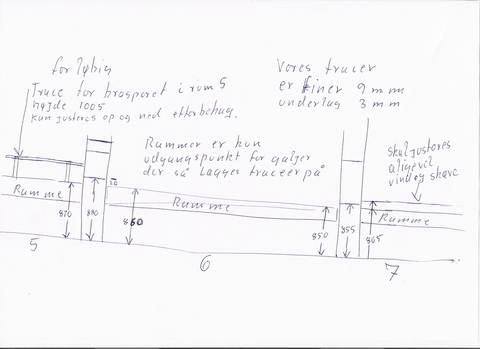 forløbig
Trace for brosporet i rum 5
højde 1005
kun justeres op og ned efter behag.
Vores tracer
er finer 9 mm
underlag 3 mm
Rammer er kun
udgangspunkt for galjer
der så lægges traceer på
skal justeres
aligevil
Ramme
Ramme
Ramme
870
880
860
850
855
865
5
6
7